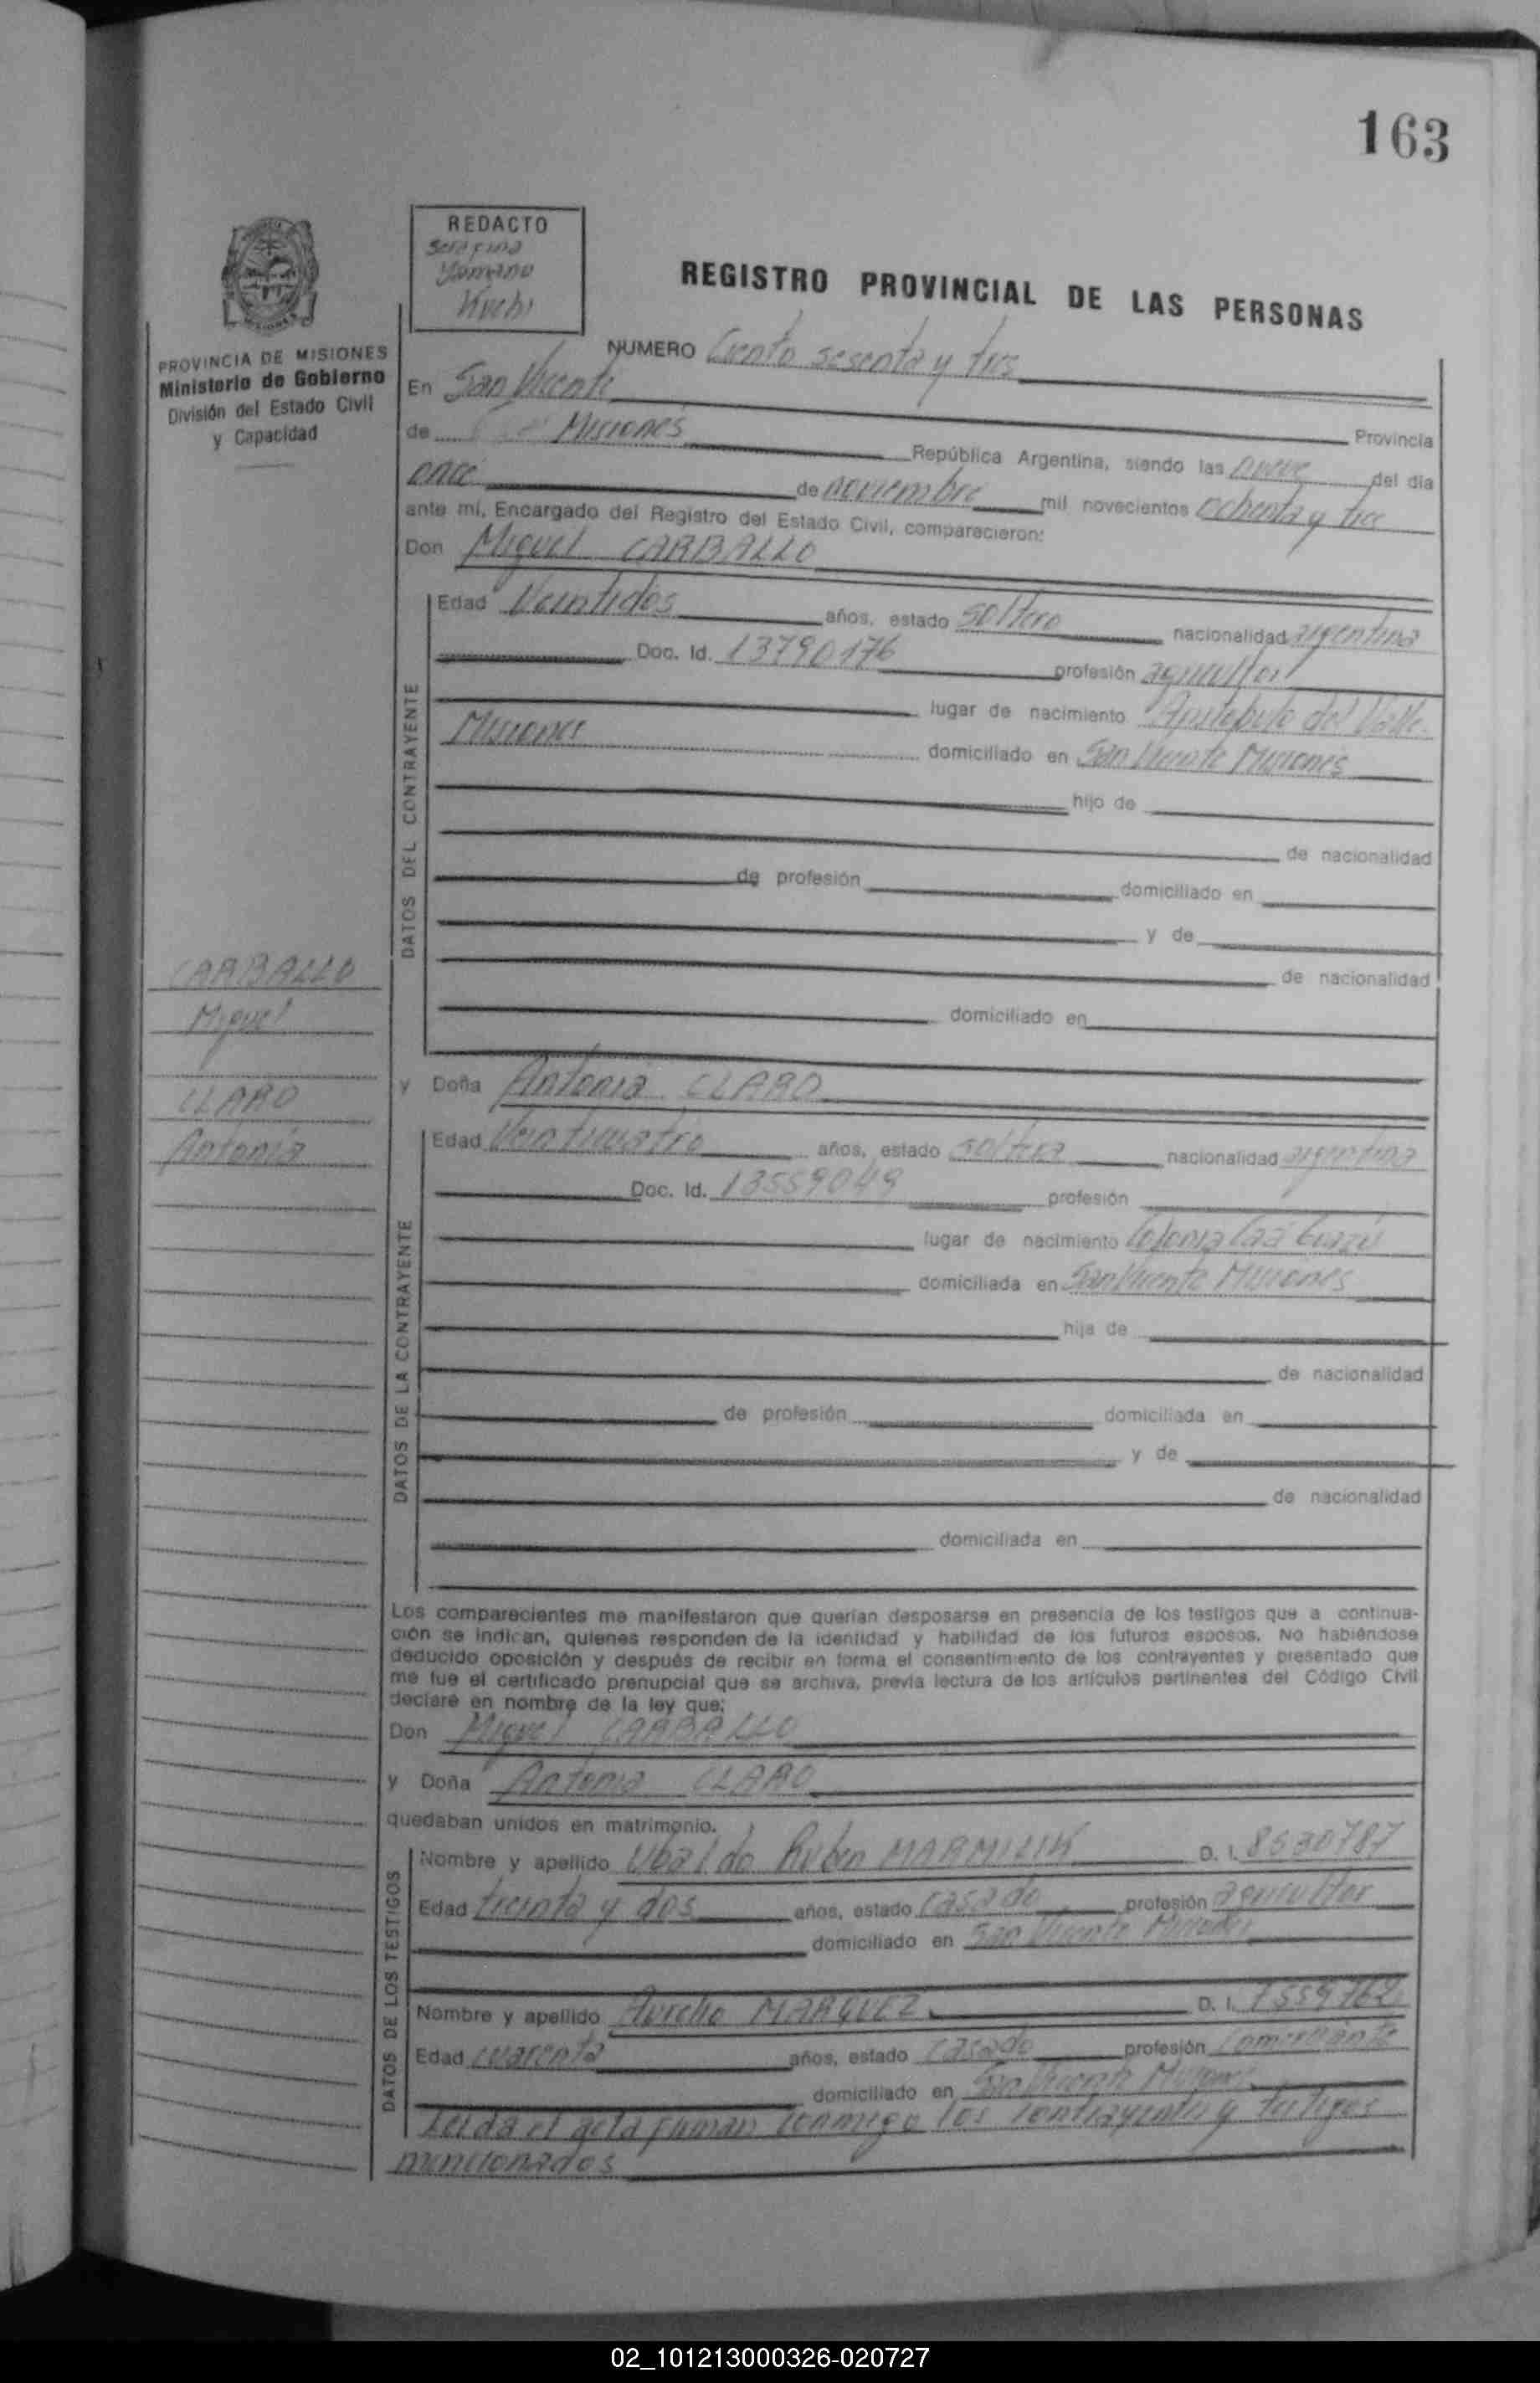 163
REDACTO
Serafina
Romano
Kuchi
REGISTRO PROVINCIAL DE LAS PERSONAS
PROVINCIA DE MISIONES
Ministerio de Gobierno
División del Estado Civil
y Capacidad
NUMERO Ciento sesenta y tres
En San Vicente
Provincia
de Misiones República Argentina, siendo las nueve del día
once de noviembre mil novecientos ochenta y tres
ante mí, Encargado del Registro del Estado Civil, comparecieron:
Don Miguel CARBALLO
DATOS DEL CONTRAYENTE
Edad Veintidos años, estado soltero nacionalidad argentina
Doc. Id. 13790176 profesión agricultor
lugar de nacimiento Aristóbulo del Valle
Misiones domiciliado en San Vicente Misiones
hijo de
de nacionalidad
de profesión domiciliado en
y de
de nacionalidad
domiciliado en
CARBALLO
Miguel
CLARO
Antonia
y Doña Antonia CLARO
DATOS DE LA CONTRAYENTE
Edad Veinticuatro años, estado soltera nacionalidad argentina
Doc. Id. 13559049 profesión
lugar de nacimiento Colonia Caá Guazú
domiciliada en San Vicente Misiones
hija de
de nacionalidad
de profesión domiciliada en
y de
de nacionalidad
domiciliada en
Los comparecientes me manifestaron que querían desposarse en presencia de los testigos que a continua-
ción se indican, quienes responden de la identidad y habilidad de los futuros esposos. No habiéndose
deducido oposición y después de recibir en forma el consentimiento de los contrayentes y presentado que
me fue el certificado prenupcial que se archiva, previa lectura de los artículos pertinentes del Código Civil
declaré en nombre de la ley que:
Don Miguel CARBALLO
y Doña Antonia CLARO
quedaban unidos en matrimonio.
DATOS DE LOS TESTIGOS
Nombre y apellido Ubaldo Ruben MARMILIK D. I. 8530787
Edad treinta y dos años, estado casado profesión agricultor
domiciliado en San Vicente Misiones
Nombre y apellido Aurelio MARQUEZ D. I. 7559762
Edad cuarenta años, estado casado profesión comerciante
domiciliado en San Vicente Misiones
Leida el acta firman conmigo los contrayentes y testigos
mencionados
02_101213000326-020727